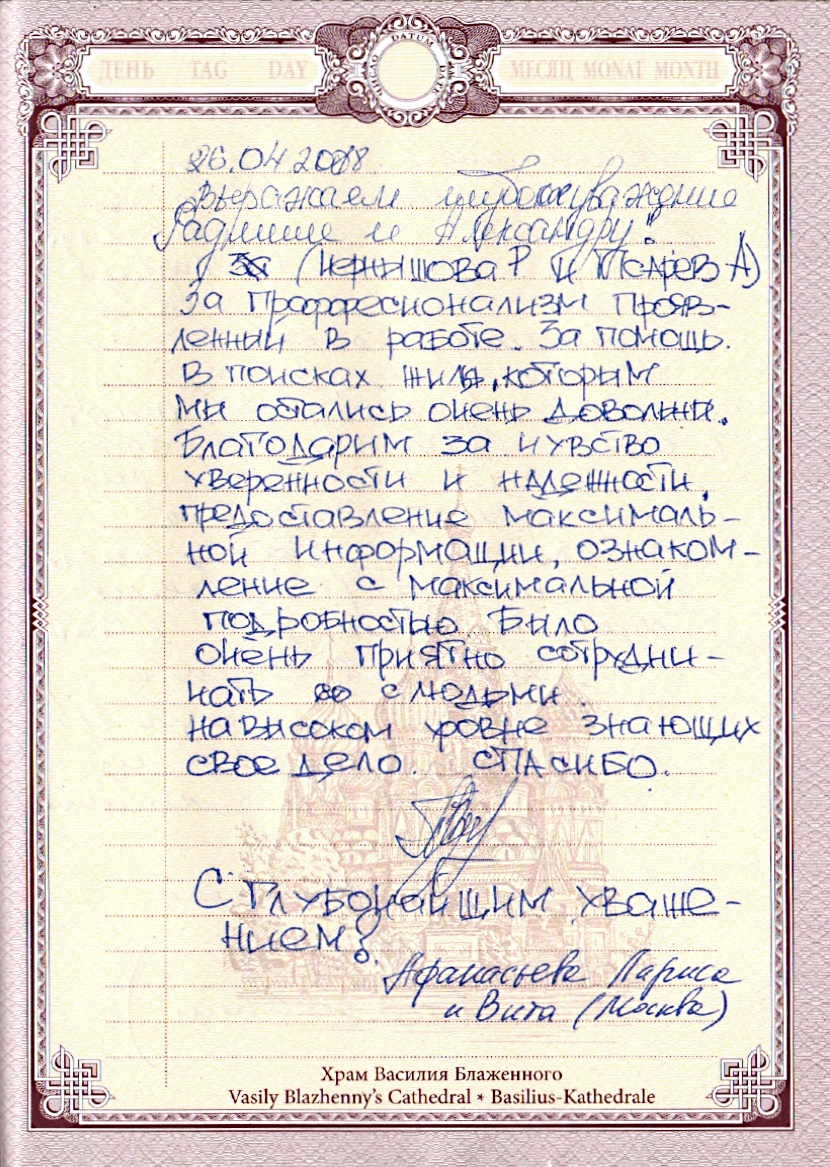 ДЕНЬ TAG DAY DATUM МЕСЯЦ MONAT MONTH
26.04 2008
Выражаем глубокое уважение
Радмиле и Александру!
(Чернышова Р и Псарёв А)
За профессионализм прояв-
ленный в работе. За помощь
в поисках жилья, которым
мы остались очень довольны.
Благодарим за чувство
уверенности и надежности,
предоставление максималь-
ной информации, ознаком-
ление с максимальной
подробностью. Было
очень приятно сотрудни-
чать с людьми
на высоком уровне знающих
свое дело. СПАСИБО.
С глубочайшим уваже-
нием!
Афанасьева Лариса
и Вита (Москва)
Храм Василия Блаженного
Vasily Blazhenny's Cathedral * Basilius-Kathedrale